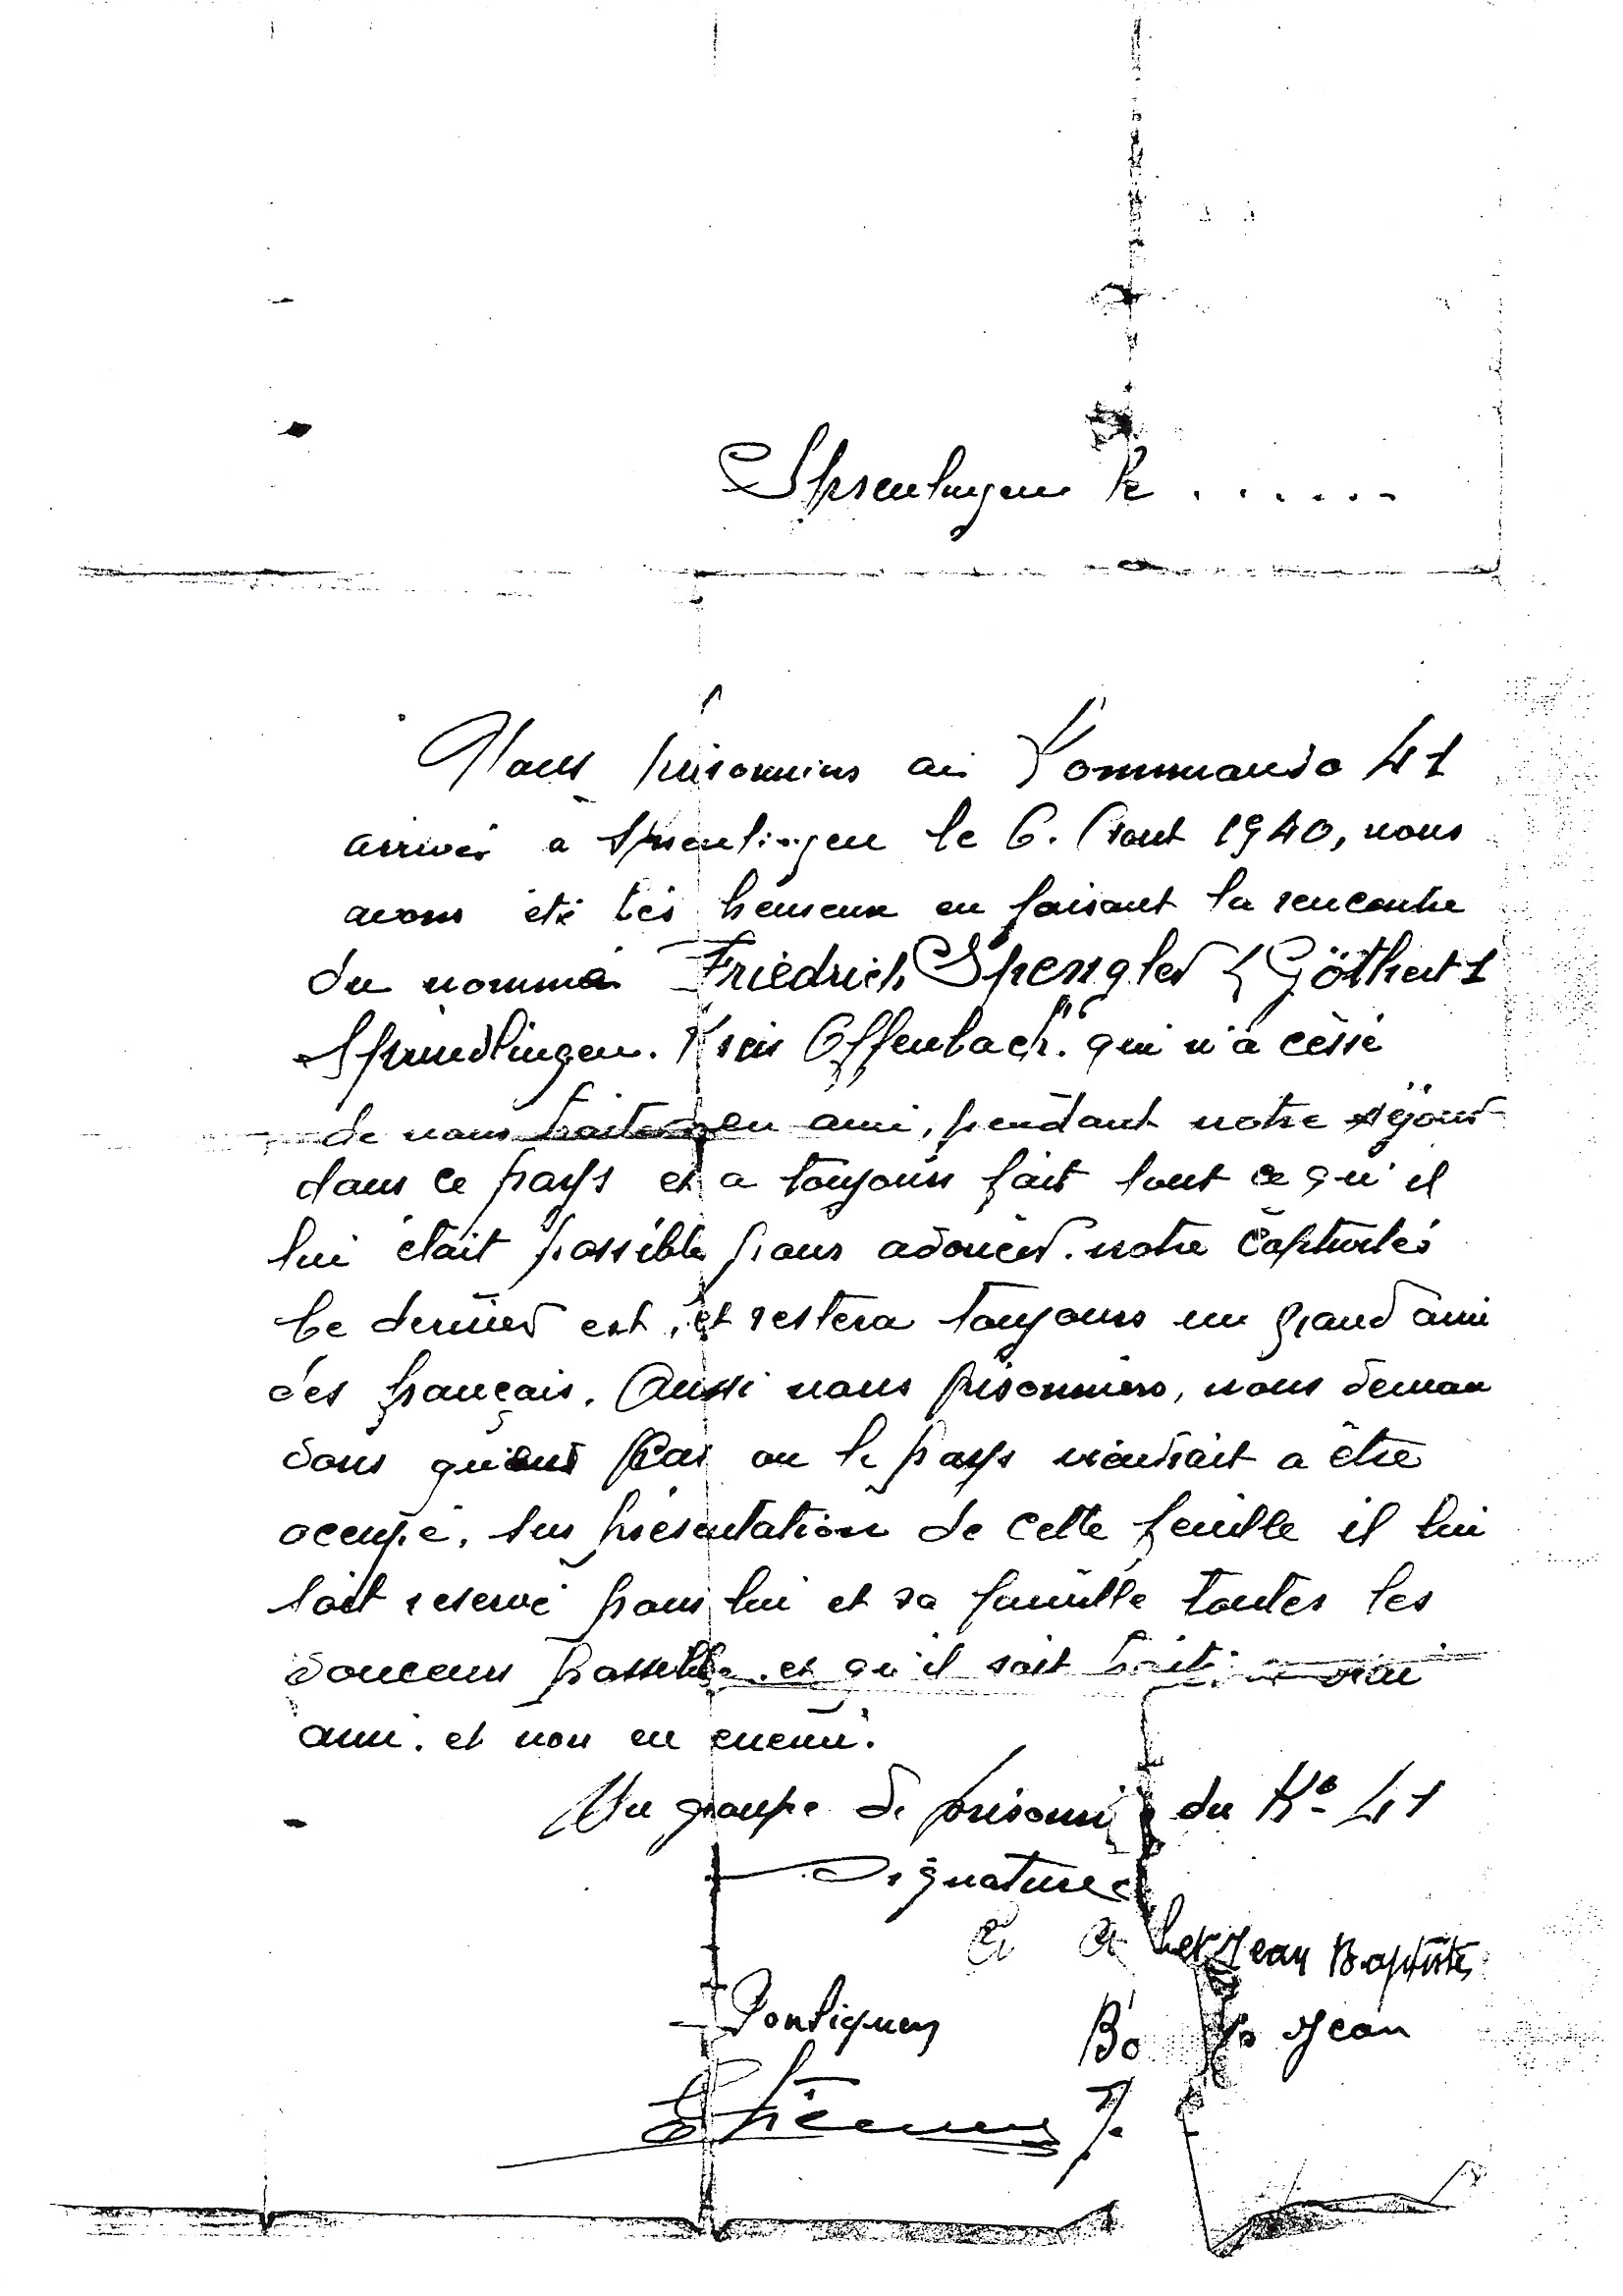 Sprenlingen le ......
Nous prisonniers au Kommando 41
arrivés à Sprenlingen le 6. Aout 1940, nous
avons été très heureux en faisant la rencontre
du nommé Friedrich Spengler
Sprindlingen. Kreis Offenbach. qui n'a cèssé
de nous traiter en ami, pendant notre séjour
dans ce pays et a toujours fait tout ce qu'il
lui était possible pour adoucir. notre captivités
Ce dernier est, et restera toujours un grand ami
des français. Aussi nous prisonniers, nous deman
dons ou le pays viendrait a être
occupé, sur présentation de cette feuille il lui
soit reservé pour lui et sa famille toutes les
douceurs possible. et qu'il soit vrai
ami. et non en enemi.
Un groupe de du Ko 41
Signature
Jean Baptiste
Jean
Etienne J.